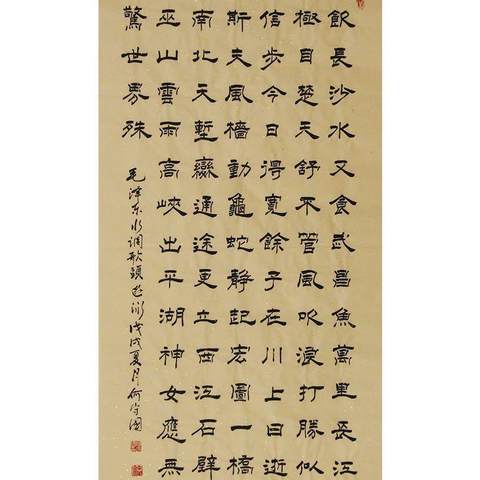 飲長沙水又食武昌魚萬里長江
極目楚天舒不管風吹浪打勝似
信步今日得寬餘子在川上曰逝
斯夫風檣動龜蛇靜起宏圖一橋
南北天塹變通途更立西江石壁
巫山雲雨高峽出平湖神女應無
驚世界殊
毛澤东水调歌頭游泳戊戌夏月何守國